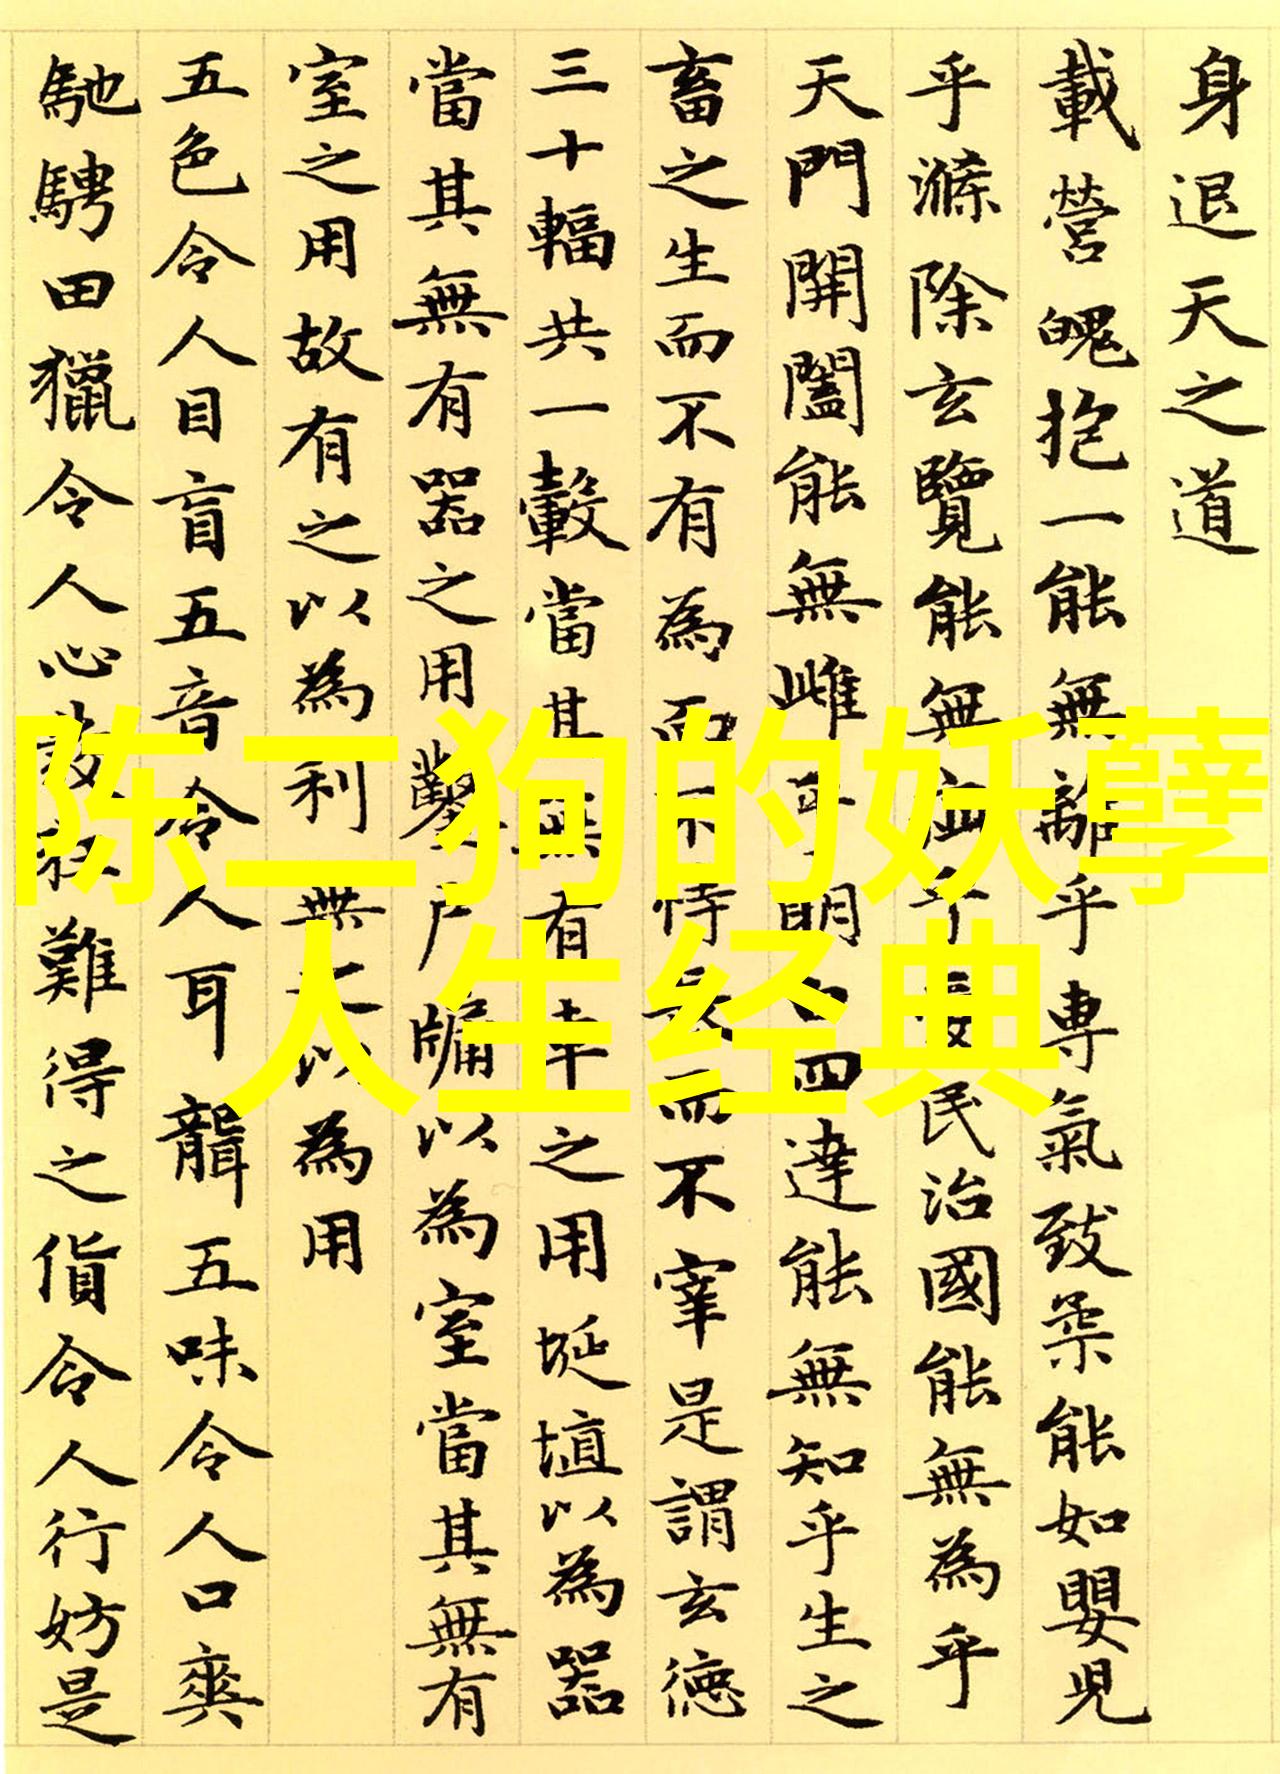 身退天之道
載營魄抱一能無離乎專氣致柔能如嬰児
乎滌除玄覽能無疵乎愛民治國能無為乎
天門開闔能無雌乎明白四達能無知乎生之
畜之生而不有為而不恃長而不宰是謂玄德
三十輻共一轂當其無有車之用埏埴以為器
當其無有器之用鑿戶牖以為室當其無有
室之用故有之以為利無之以為用
五色令人目盲五音令人耳聾五味令人口爽
馳騁田獵令人心發狂難得之貨令人行妨是
陈二狗的妖孽
人生经典